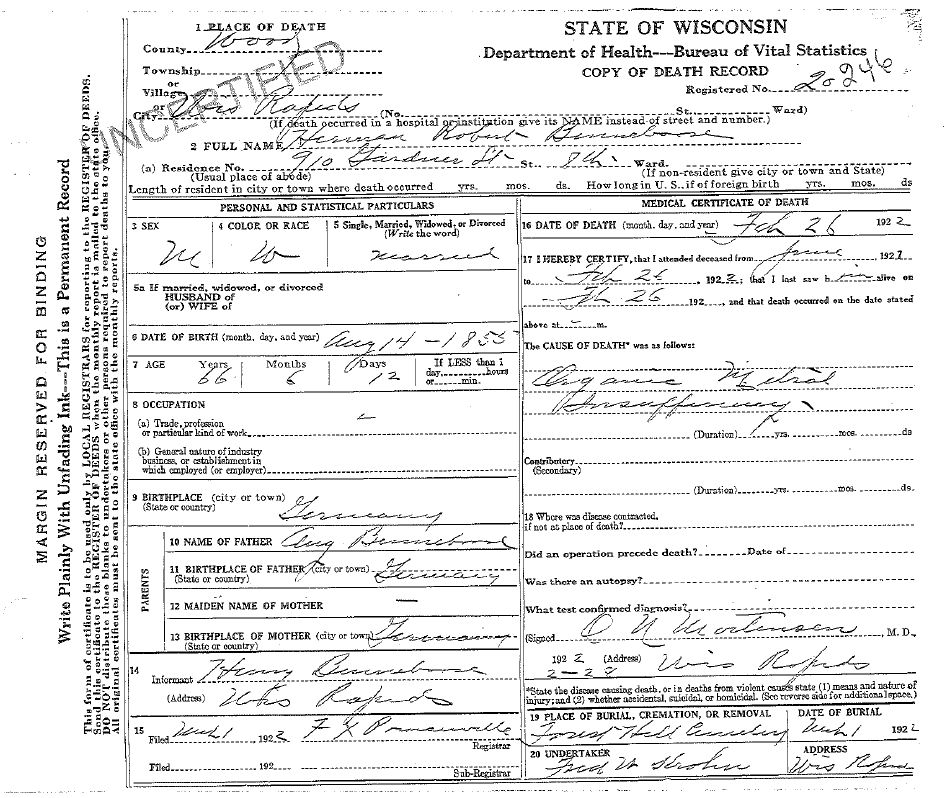 MARGIN RESERVED FOR BINDING
Write Plainly With Unfading Ink---This is a Permanent Record
This form of certificate is to be used only by LOCAL REGISTRARS for reporting to the REGISTER OF DEEDS.
Send this certificate to the REGISTER OF DEEDS when the monthly report is mailed to the state office.
DO NOT distribute these blanks to undertakers or other persons required to report deaths to you.
All original certificates must be sent to the state office with the monthly reports.
UNCERTIFIED
1 PLACE OF DEATH
County Wood
Township
or
Village
or
City Wis Rapids (No. St. Ward)
(If death occurred in a hospital or institution give its NAME instead of street and number.)
STATE OF WISCONSIN
Department of Health---Bureau of Vital Statistics
COPY OF DEATH RECORD
Registered No. 20246
2 FULL NAME Herman Robert Benneboose
(a) Residence No. 910 Gardner St St. 8th Ward.
(Usual place of abode) (If non-resident give city or town and State)
Length of resident in city or town where death occurred yrs. mos. ds. How long in U. S., if of foreign birth yrs. mos. ds
PERSONAL AND STATISTICAL PARTICULARS
3 SEX M
4 COLOR OR RACE W
5 Single, Married, Widowed, or Divorced
(Write the word)
married
5a If married, widowed, or divorced
HUSBAND of
(or) WIFE of
6 DATE OF BIRTH (month, day, and year) Aug 14 - 1855
7 AGE Years Months Days If LESS than 1
66 6 12 day, hours
or min.
8 OCCUPATION
(a) Trade, profession
or particular kind of work
(b) General nature of industry
business, or establishment in
which employed (or employer)
9 BIRTHPLACE (city or town)
(State or country) Germany
PARENTS
10 NAME OF FATHER Aug Benneboose
11 BIRTHPLACE OF FATHER (city or town)
(State or country) Germany
12 MAIDEN NAME OF MOTHER —
13 BIRTHPLACE OF MOTHER (city or town)
(State or country) Germany
14
Informant Henry Benneboose
(Address) Wis Rapids
15
Filed Mch 1 1922 F X
Registrar
Filed 192
Sub-Registrar
MEDICAL CERTIFICATE OF DEATH
16 DATE OF DEATH (month, day, and year) Feb 26 1922
17 I HEREBY CERTIFY, that I attended deceased from June 1921
to Feb 26, 1922; that I last saw him alive on
Feb 26 192, and that death occurred on the date stated
above at m.
The CAUSE OF DEATH* was as follows:
Organic Mitral
Insufficiency
(Duration) yrs. mos. ds
Contributory
(Secondary)
(Duration) yrs. mos. ds.
18 Where was disease contracted,
if not as place of death?
Did an operation precede death? Date of
Was there an autopsy?
What test confirmed diagnosis?
(Signed O N Mortensen, M. D.,
1922 (Address) Wis Rapids
2-28
*State the disease causing death, or in deaths from violent causes state (1) means and nature of
injury; and (2) whether accidental, suicidal, or homicidal. (See reverse side for additional space.)
19 PLACE OF BURIAL, CREMATION, OR REMOVAL DATE OF BURIAL
Forest Hill Cemetery Mch 1 1922
20 UNDERTAKER ADDRESS
Fred W Wis Rapids